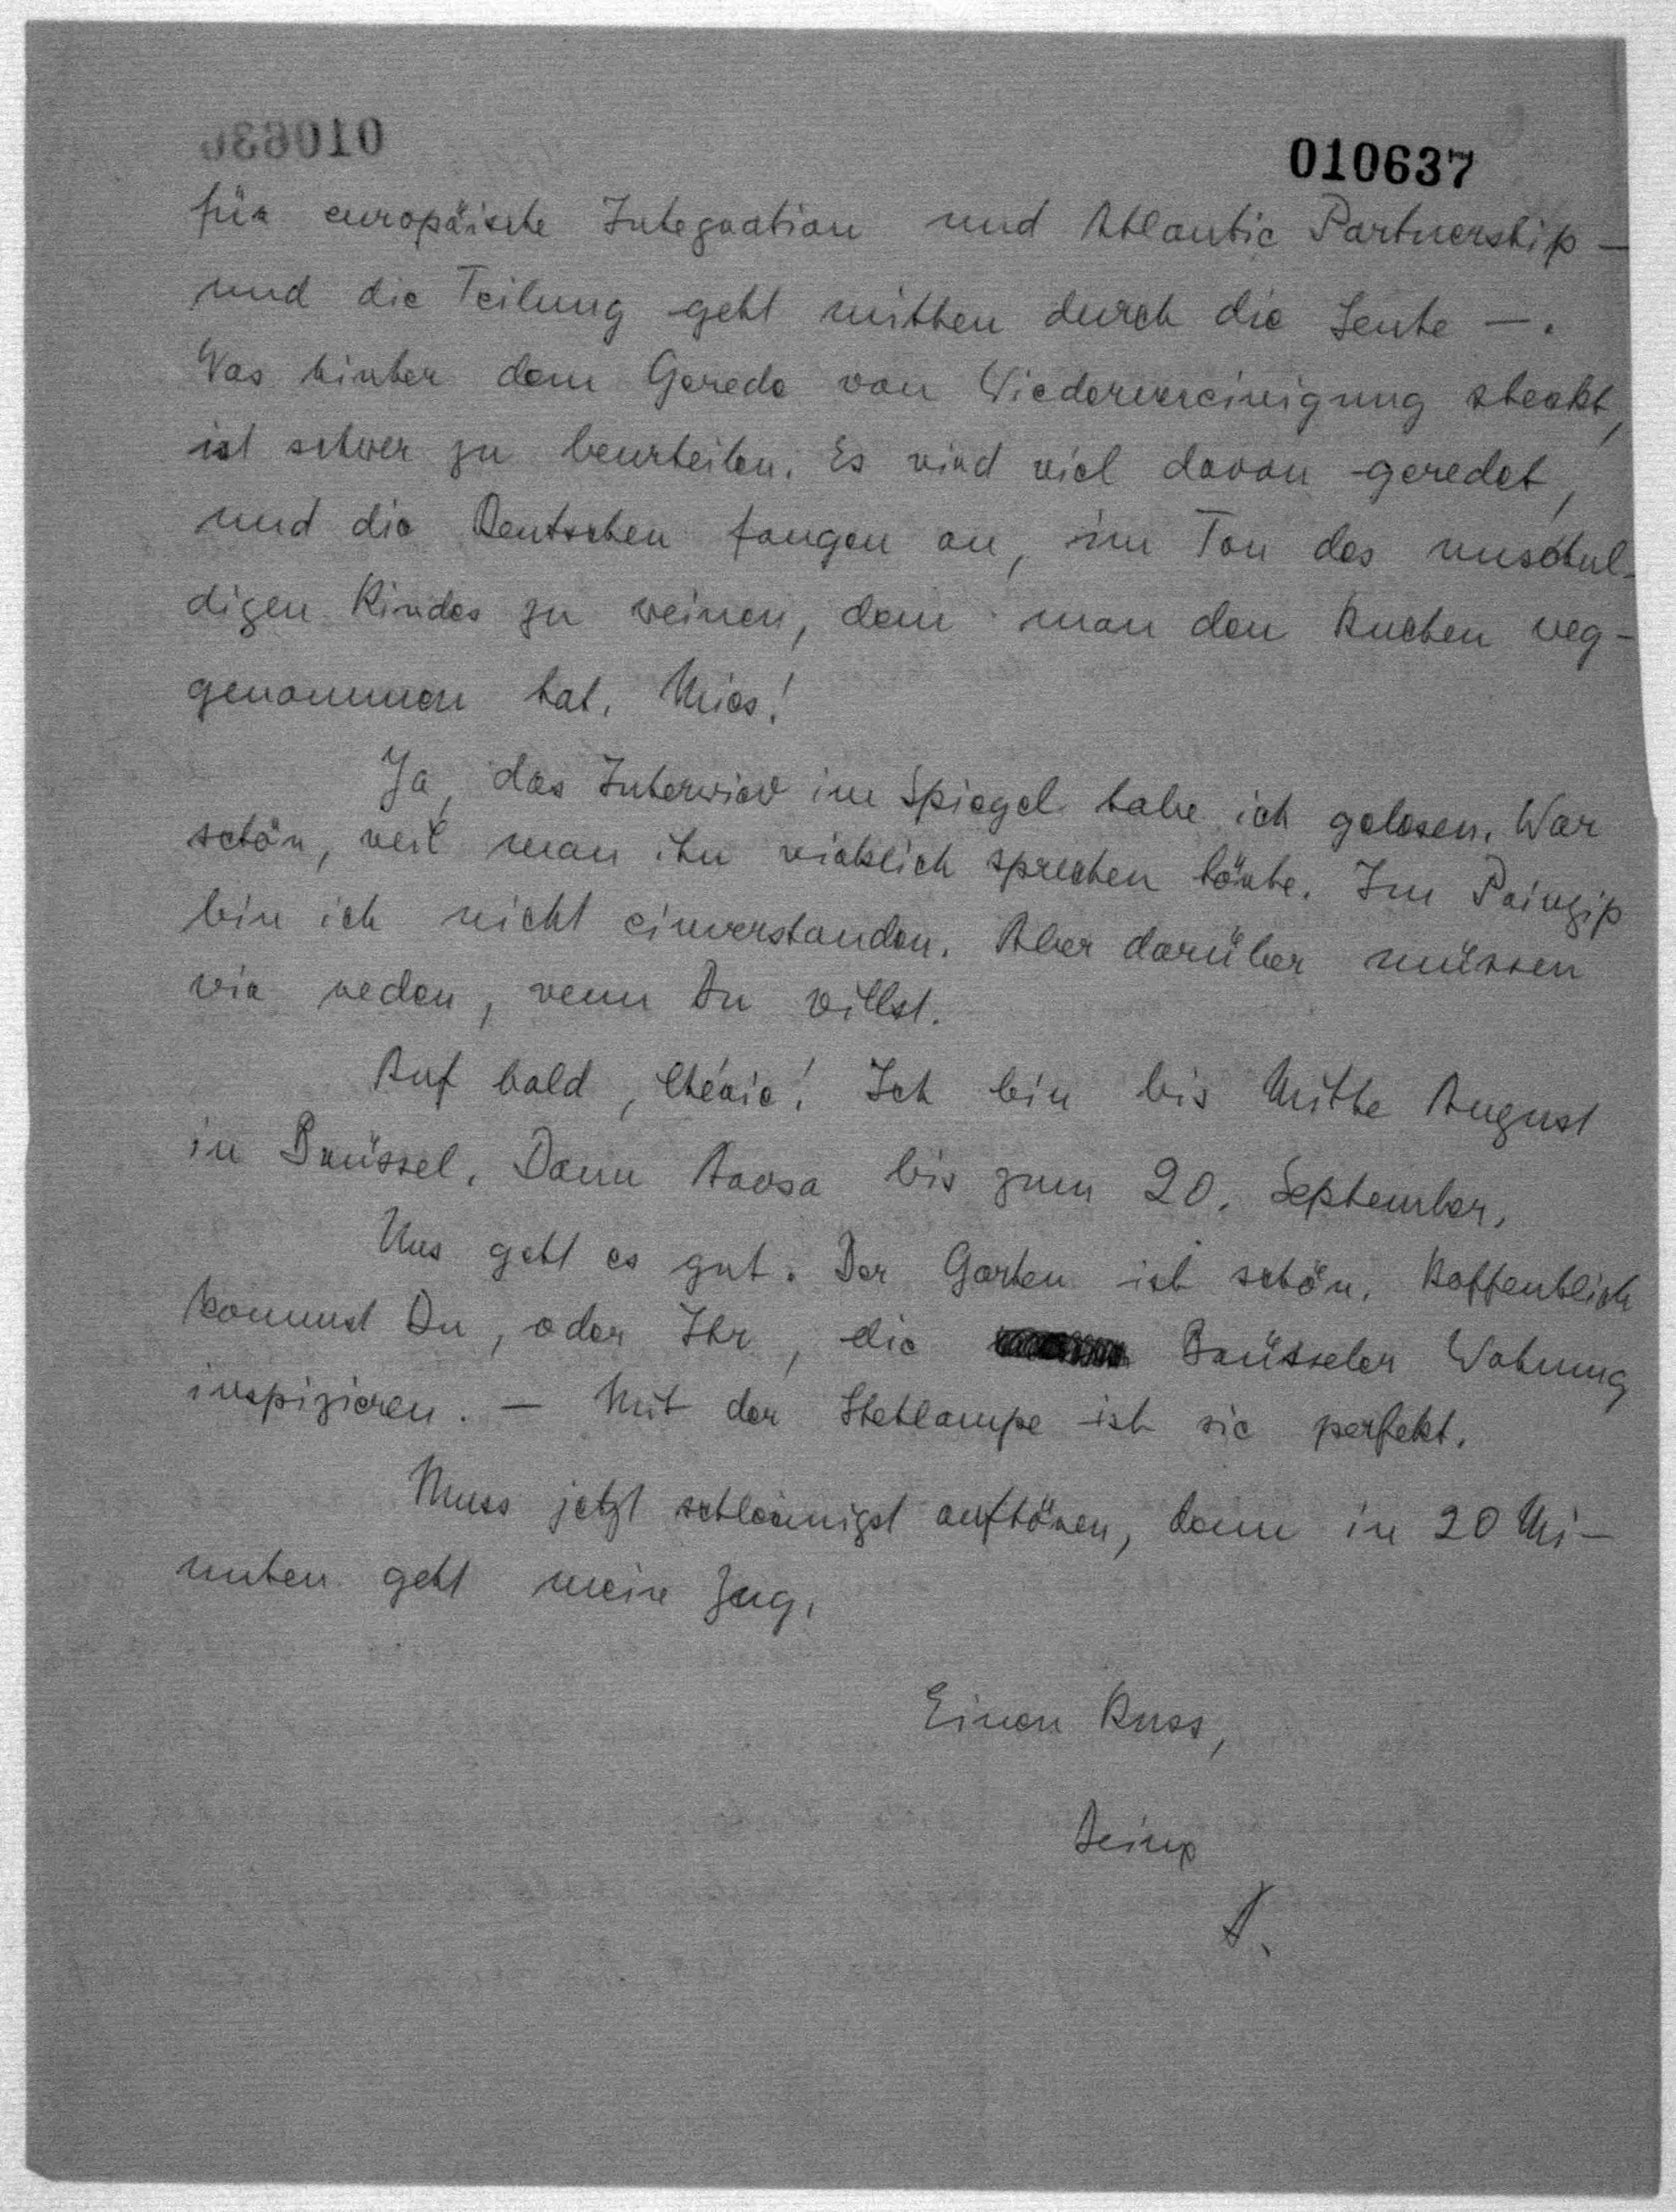 010637
für europäische Integration und Atlantic Partnership —
und die Teilung geht mitten durch die Leute —.
Was hinter dem Gerede von Wiedervereinigung steckt,
ist schwer zu beurteilen. Es wird viel davon geredet,
und die Deutschen fangen an, im Ton des unschul-
digen Kindes zu weinen, dem man den Kuchen weg-
genommen hat. Mies!
Ja, das Interwiev im Spiegel habe ich gelesen. War
schön, weil man ihn wirklich sprechen hörte. Im Prinzip
bin ich nicht einverstanden. Aber darüber müssen
wir reden, wenn Du willst.
Auf bald, Chérie! Ich bin bis Mitte August
in Brüssel. Dann Arosa bis zum 20. September.
Uns geht es gut. Der Garten ist schön. Hoffentlich
kommst Du, oder Ihr, die Brüsseler Wohnung
inspizieren. — Mit der Stehlampe ist sie perfekt.
Muss jetzt schleunigst aufhören, denn in 20 Mi-
nuten geht mein Zug.
Einen Kuss,
Deine
A.